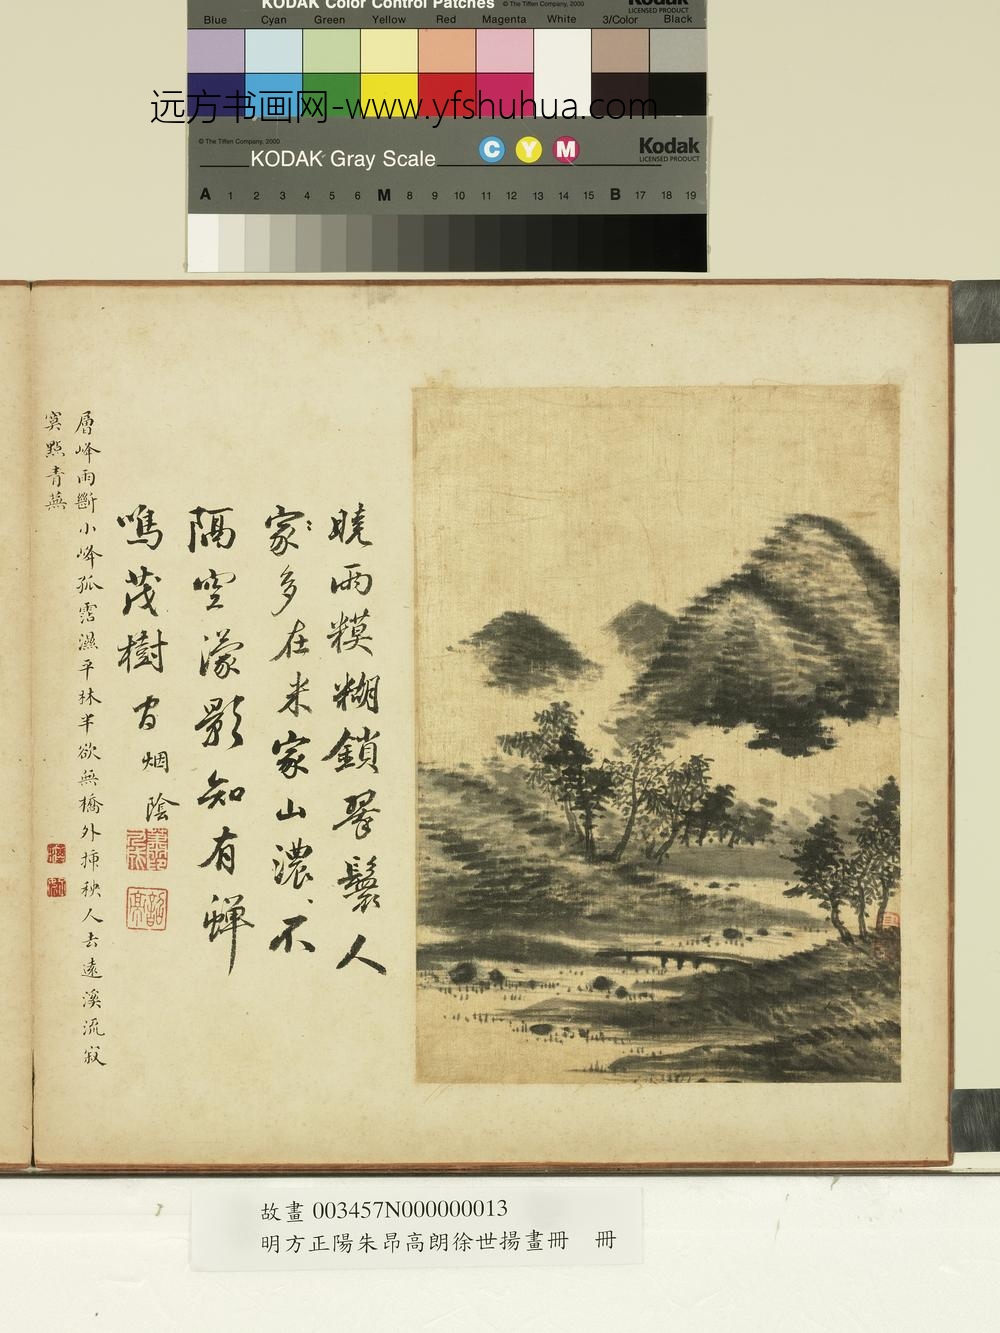 KODAK Color Control Patches © The Tiffen Company, 2000 Kodak
LICENSED PRODUCT
Blue Cyan Green Yellow Red Magenta White 3/Color Black
远方书画网-www.yfshuhua.com
© The Tiffen Company, 2000
KODAK Gray Scale C Y M Kodak
LICENSED PRODUCT
A 1 2 3 4 5 6 M 8 9 10 11 12 13 14 15 B 17 18 19
曉雨糢糊鎖翠鬟人
家〻多在米家山濃不
隔空濛影知有蟬
鳴茂樹間
烟陰
層峰雨斷小峰孤雲濕平林半欲無橋外插秧人去遠溪流寂
寞點青蕪
故畫 003457N000000013
明方正陽朱昂高朗徐世揚畫冊 冊